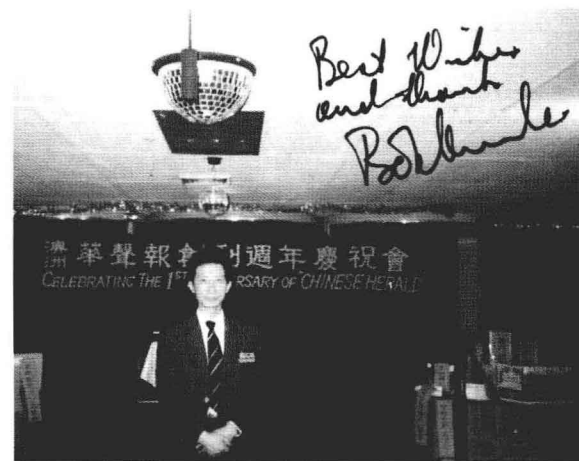 Best Wishes
and thanks
澳洲 華聲報創刊週年慶祝會
CELEBRATING THE 1ST RSARY OF CHINESE HERALD